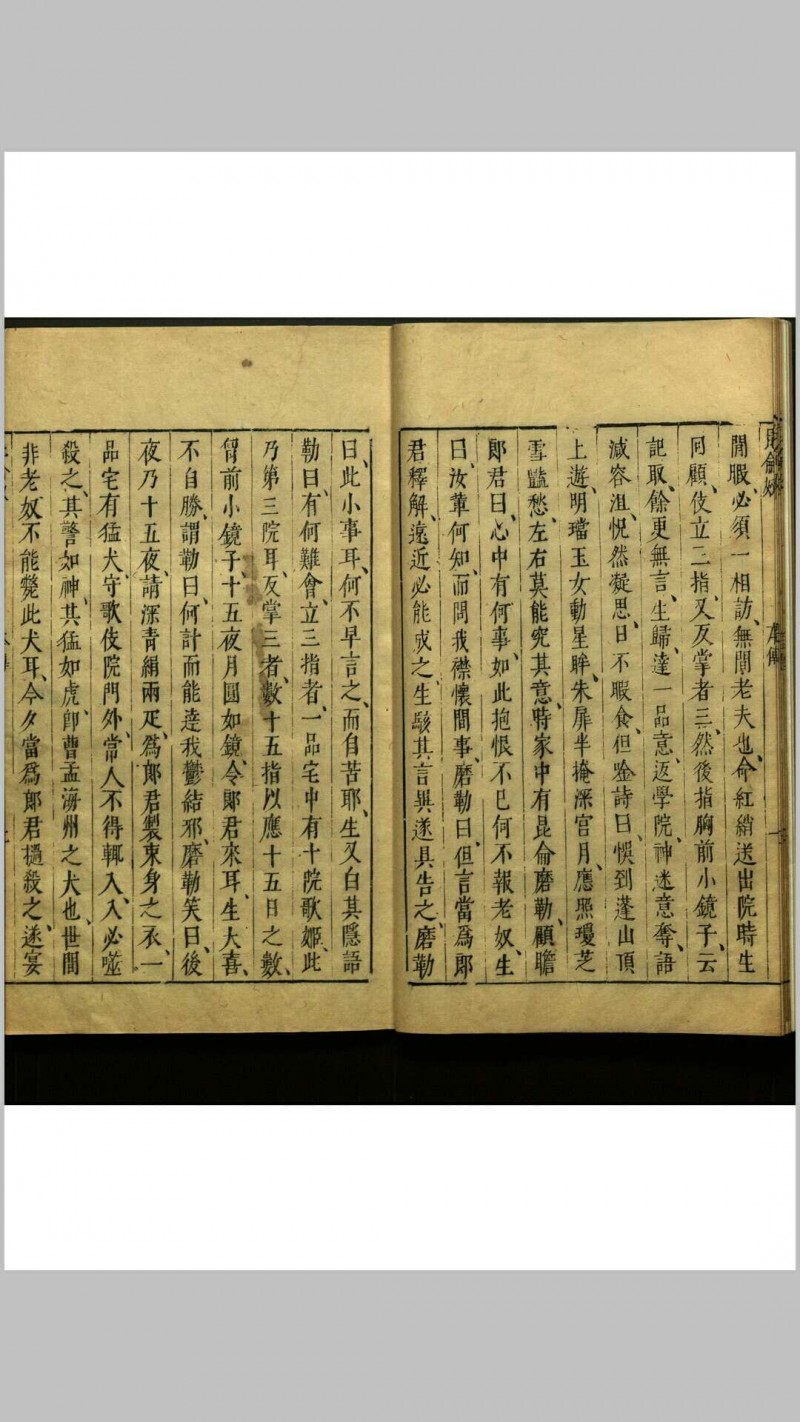 閒暇、必須一相訪、無間老夫也、命紅綃送出院時生
囘顧、伎立三指、又反掌者三、然後指胸前小鏡子、云
記取、餘更無言、生歸、達一品意、返學院、神迷意奪、語
減容沮、怳然凝思、日不暇食、但吟詩曰、悞到蓬山頂
上遊、明璫玉女動星眸、朱扉半掩深宮月、應照瓊芝
雪豔愁、左右莫能究其意、時家中有昆侖磨勒、顧瞻
郎君曰、心中有何事、如此抱恨不已何不報老奴、生
曰、汝輩何知、而問我襟懷間事、磨勒曰、但言當爲郎
君釋解、遠近必能成之、生駭其言異遂具告之、磨勒
曰、此小事耳、何不早言之、而自苦耶、生又白其隱語
勒曰、有何難會、立三指者、一品宅中有十院歌姬、此
乃第三院耳、反掌三者、數十五指以應十五日之數、
胷前小鏡子、十五夜月圓如鏡、令郎君來耳、生大喜、
不自勝、謂勒曰、何計而能達我鬱結邪、磨勒笑曰、後
夜乃十五夜、請深青絹兩疋、爲郎君製束身之衣、一
品宅有猛犬、守歌伎院門外、常人不得輒入、入必噬
殺之、其警如神、其猛如虎、卽曹孟海州之犬也、世間
非老奴不能斃此犬耳、今夕當爲郎君撾殺之、遂宴